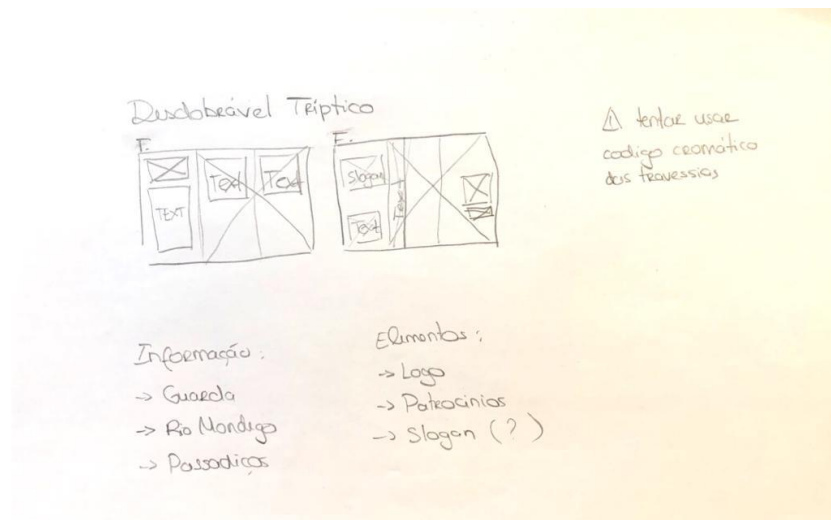 Desdobrável Tríptico
F.
TEXT
Text
Text
E.
Slogan
Text
⚠ tentar usar
codigo cromático
das travessias
Informação:
→ Guarda
→ Rio Mondego
→ Passadiços
Elementos:
→ Logo
→ Patrocinios
→ Slogan (?)